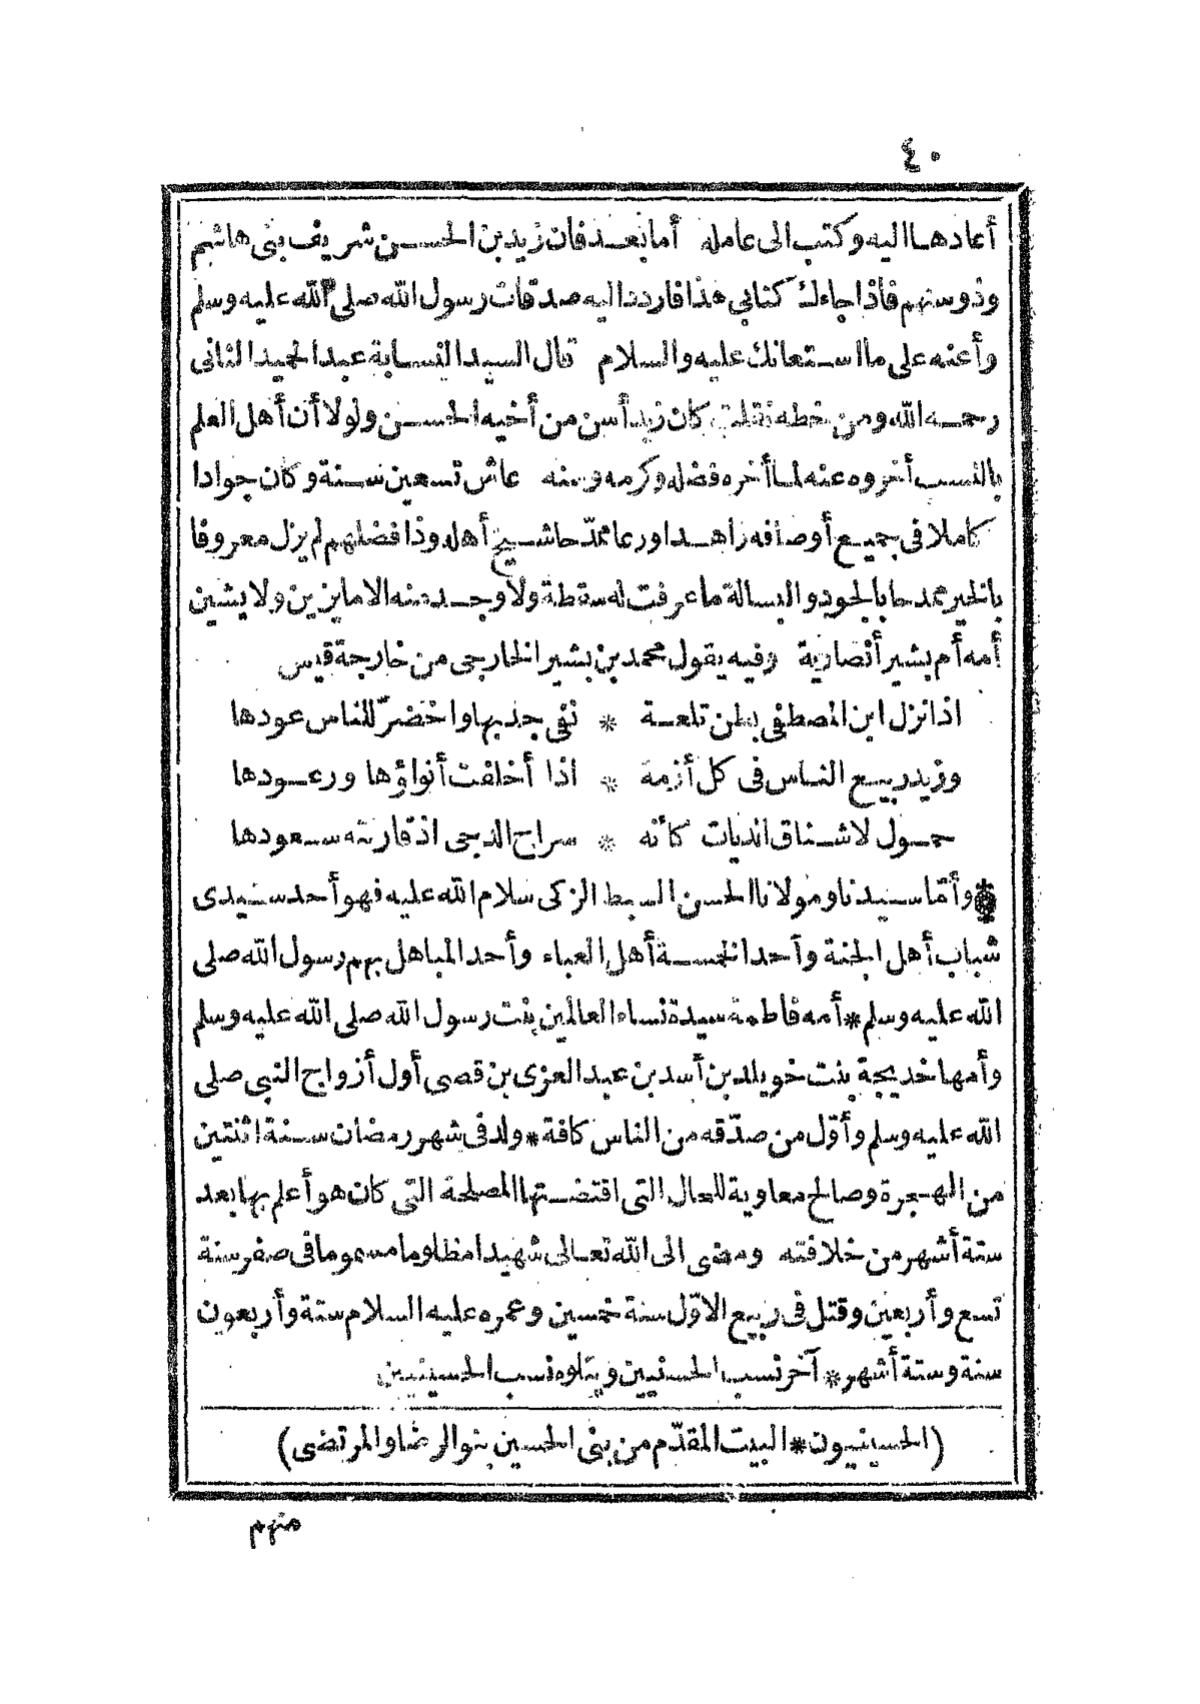 ٤٠
أعادها اليه وكتب الى عامله أما بعد فان زيد بن الحسن شريف بنى هاشم
وذو سنهم فاذا جاءك كتابي هذا فاردد اليه صدقات رسول الله صلى الله عليه وسلم
وأعنه على ما استعانك عليه والسلام قال السيد النسابة عبد الحميد الثانى
رحمه الله ومن خطه نقلت كان زيد أسن من أخيه الحسن ولولا أن أهل العلم
بالنسب أخروه عنه لما أخره فضله وكرمه وسنه عاش تسعين سنة وكان جوادا
كاملا فى جميع أوصافه زاهدا ورعا ممدّحا شيخ أهله وذا فضلهم لم يزل معروفا
بالخير ممدحا بالجود والبسالة ما عرفت له سقطة ولا وجد منه الا ما يزين ولا يشين
أمه أم بشير أنصارية وفيه يقول محمد بن بشير الخارجى من خارجة قيس
اذا نزل ابن المصطفى بطن تلعة * نفى جدبها واخضرّ للناس عودها
وزيد ربيع الناس فى كل أزمة * اذا أخلفت أنواؤها ورعودها
حمول لاشناق الديات كأنه * سراج الدجى اذ قارنته سعودها
* وأمّا سيدنا ومولانا الحسن السبط الزكى سلام الله عليه فهو أحد سيدى
شباب أهل الجنة وأحد الخمسة أهل العباء وأحد المباهل بهم رسول الله صلى
الله عليه وسلم * أمه فاطمة سيدة نساء العالمين بنت رسول الله صلى الله عليه وسلم
وأمها خديجة بنت خويلد بن أسد بن عبد العزى بن قصى أول أزواج النبى صلى
الله عليه وسلم وأوّل من صدّقه من الناس كافة * ولد فى شهر رمضان سنة اثنتين
من الهجرة وصالح معاوية للحال التى اقتضتها المصلحة التى كان هو أعلم بها بعد
ستة أشهر من خلافته ومضى الى الله تعالى شهيدا مظلوما مسموما فى صفر سنة
تسع وأربعين وقتل فى ربيع الاوّل سنة خمسين وعمره عليه السلام ستة وأربعون
سنة وستة أشهر * آخر نسب الحسنيين ويتلوه نسب الحسينيين
(الحسينيون * البيت المقدّم من بنى الحسين بنو الرضا والمرتضى)
منهم